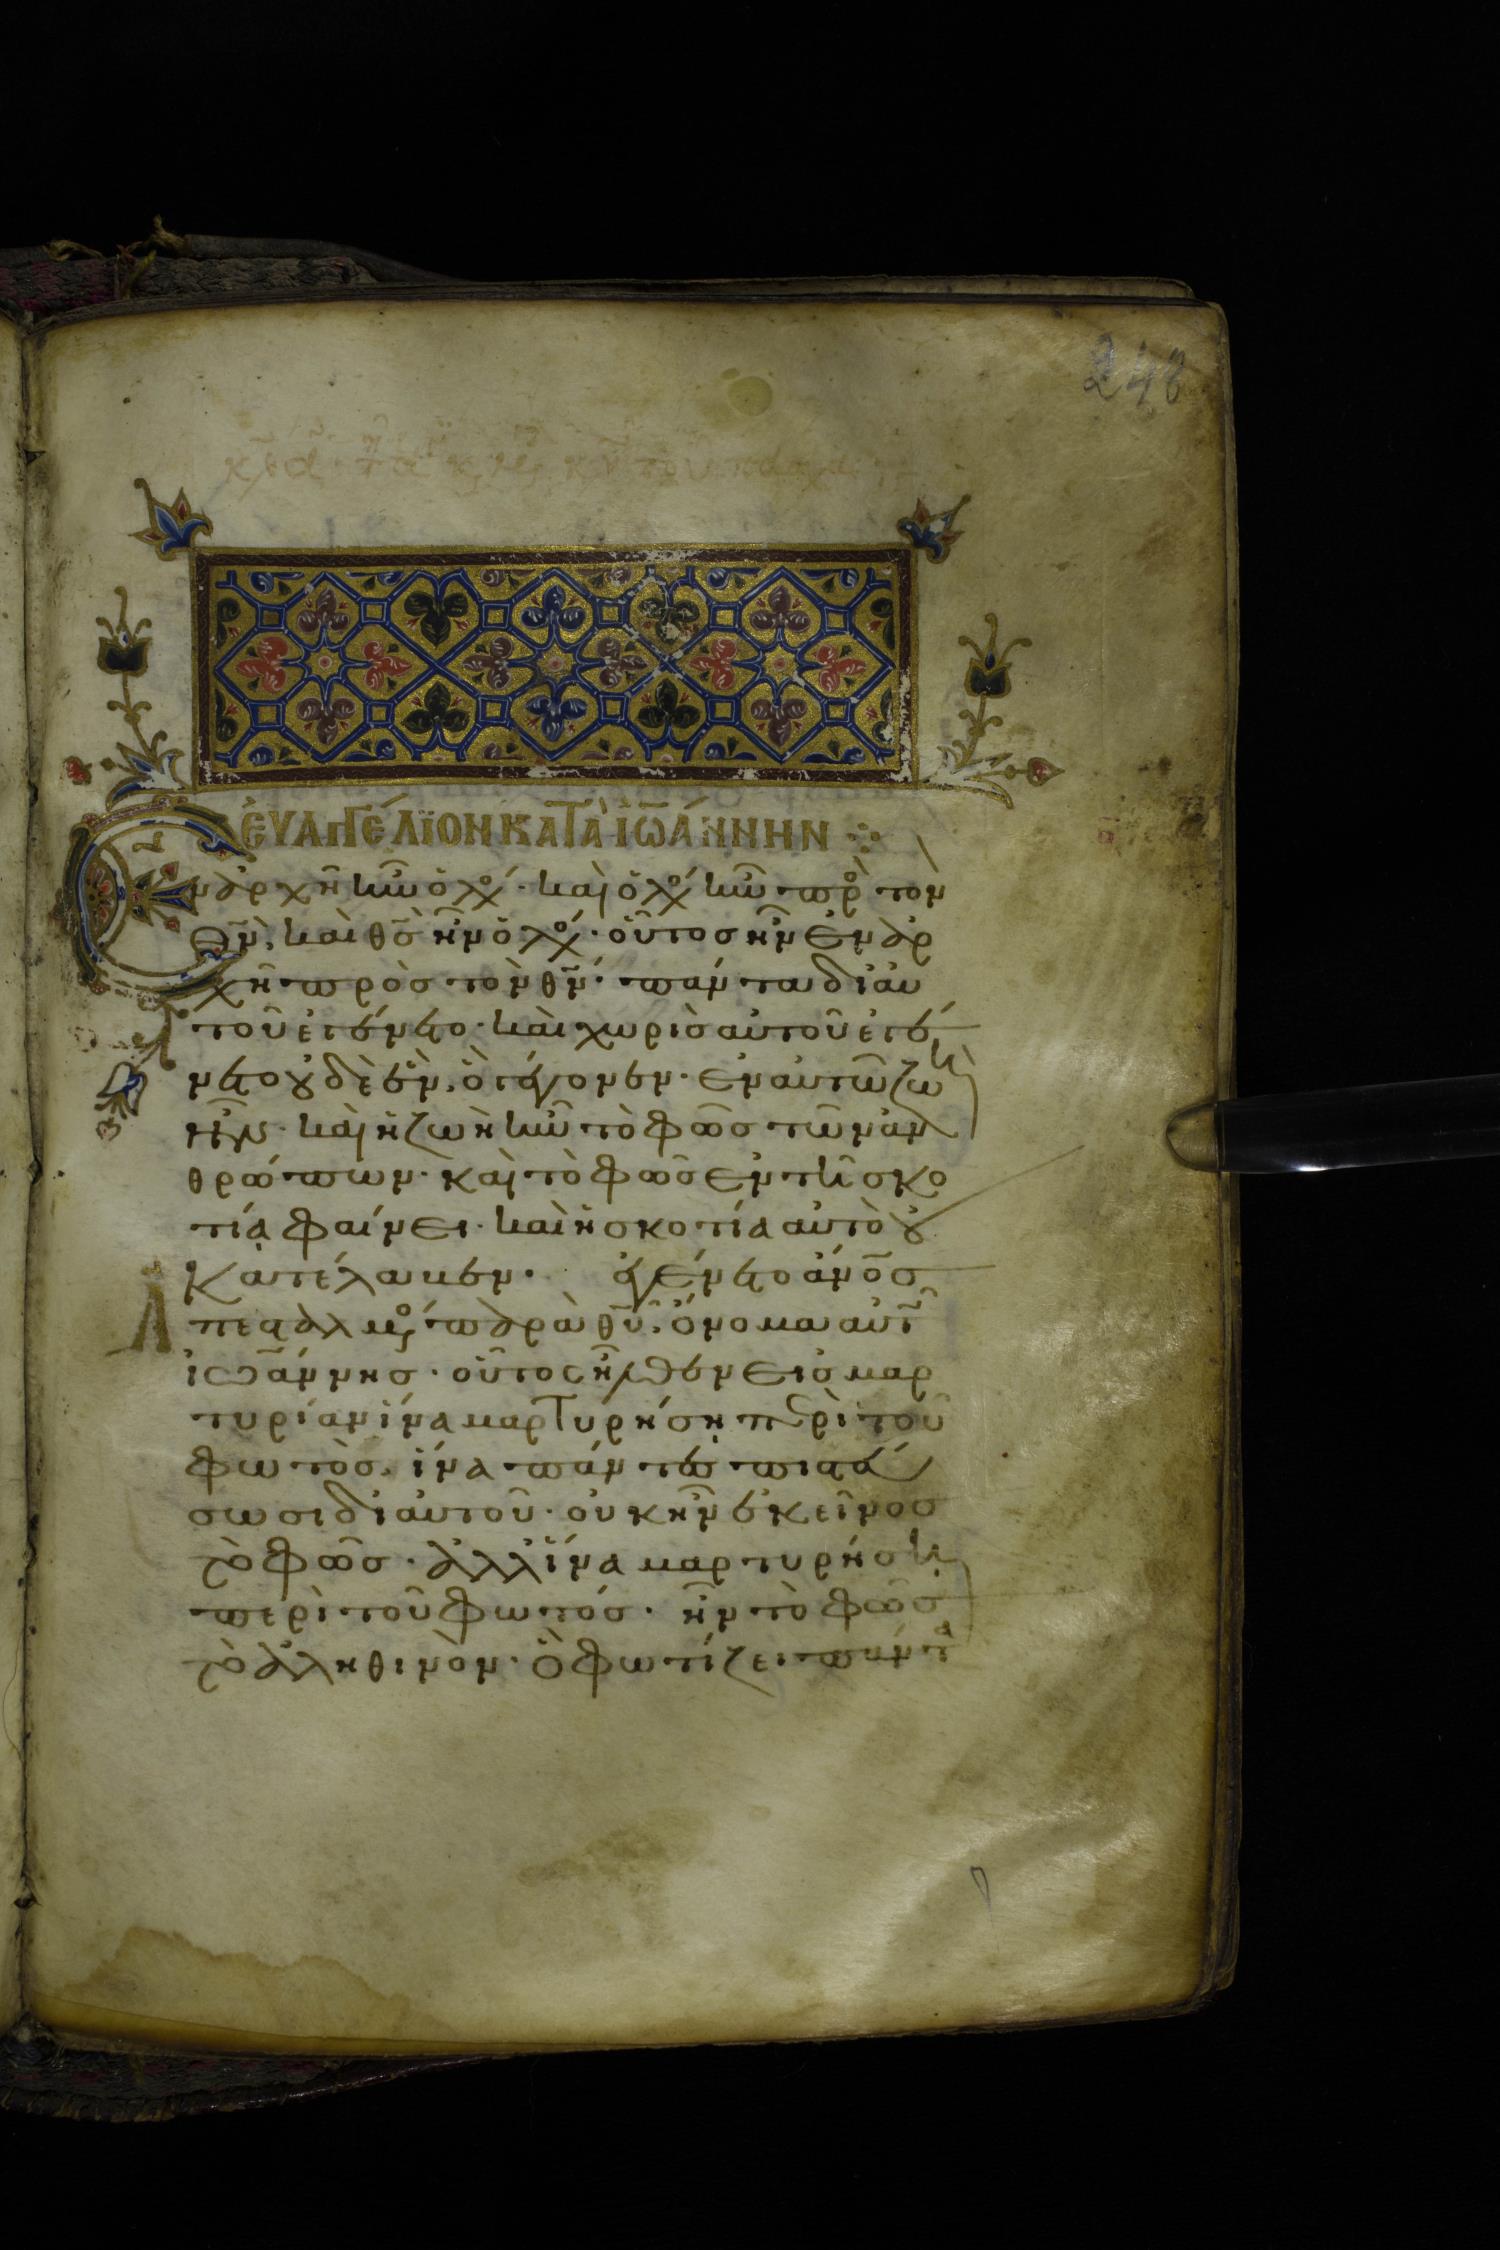 248
ἐυαγγέλϊον κατὰ ἰω̅άννην
Ἐν ἀρχῆ ἦν ὁ λό̅γ· καὶ ὁ λό̅γ ἦν πρὸ τὸν
θ̅ν, καὶ θ̅ς ἦν ὁ λό̅γ· οὗτος ἦν ἐν ἀρ
χῆ πρὸς τὸν θ̅ν· πάντα δι' αυ
τοῦ ἐγένετο· καὶ χωρὶς αὐτοῦ ἐγέ
νετο οὐδὲ ἕν, ὃ γέγονεν· ἐν αυτῶ ζωὴ
ἦν· καὶ ἡ ζωὴ ἦν τὸ φῶς τῶν ἀν
θρώπων· καὶ τὸ φῶς ἐν τῆ σκο
τία φαίνει· καὶ ἡ σκοτία αὐτὸ οὐ
κατέλαβεν· ἐγένετο ἄν̅ος
ἀπεσταλμένος παρὰ θ̅υ, ὄνομα αὐτ
ἰω̅άννης· οὗτος ἦλθεν εἰς μαρ
τυρίαν ἵνα μαρτυρήση περὶ τοῦ
φωτὸς, ἵνα πάντες πιστεύ
σωσι δι' αὐτοῦ· οὐκ ἦν ἐκεῖνος
τὸ φῶς· ἀλλ' ἵνα μαρτυρήση
περὶ τοῦ φωτός· ἦν τὸ φῶς
τὸ ἀληθινὸν· ὃ φωτίζει πάντα